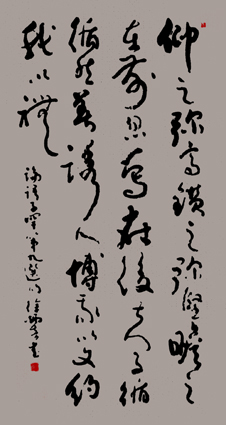 仰之彌高鑽之彌堅瞻之
在前忽焉在後夫子循
循然善誘人博我以文約
我以禮
論語子罕第九選句 徐